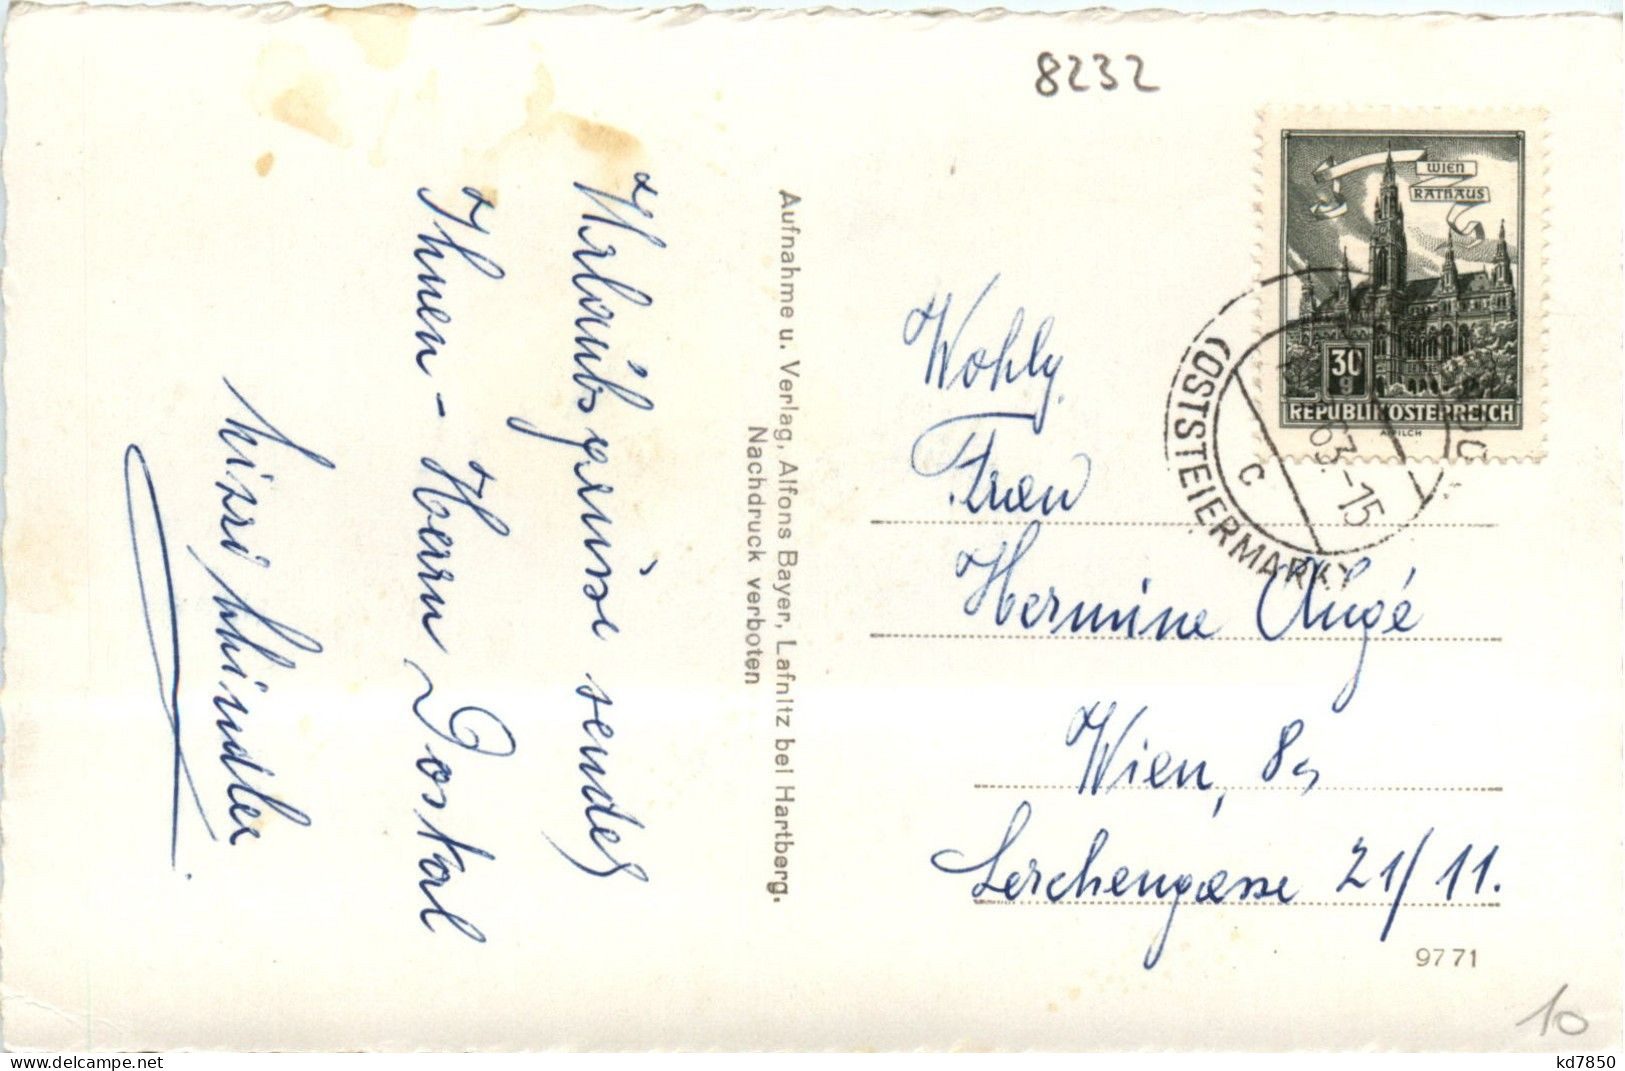 8232
WIEN
RATHAUS
30
g
REPUBLIK ÖSTERREICH
A. PILCH
(OSTSTEIERMARK)
63.-15
c
Urlaubsgrüsse sendet
Ihnen - Herrn Dostal
Aufnahme u. Verlag, Alfons Bayer, Lafnitz bei Hartberg.
Nachdruck verboten
Wohlg.
Frau
Hermine Augé
Wien, 8,
Lerchengasse 21/11.
9771
10
kd7850